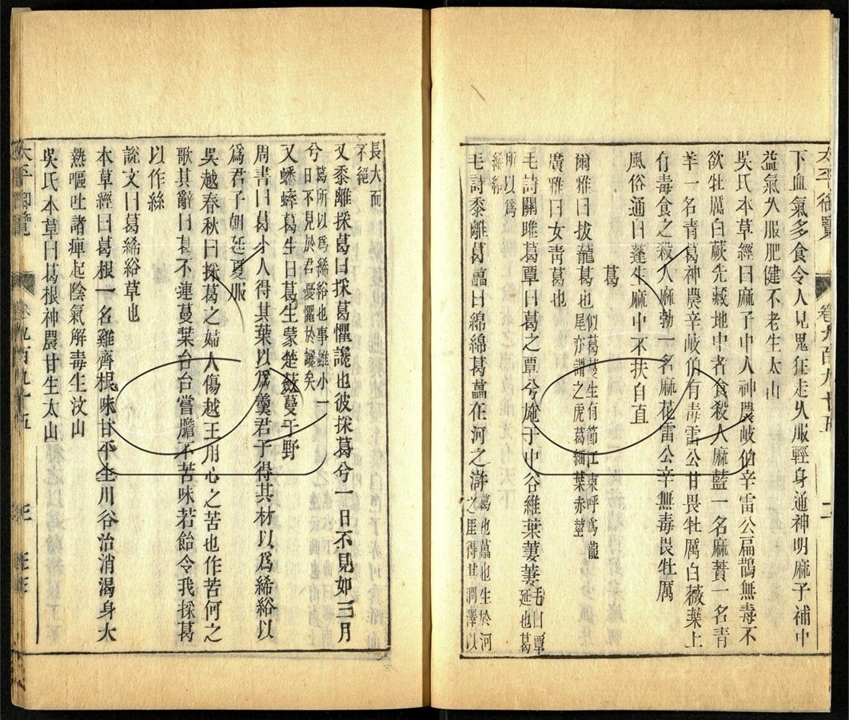 下血氣多食令人見鬼狂走久服輕身通神明麻子補中
益氣久服肥健不老生太山
吳氏本草經曰麻子中人神農岐伯辛雷公扁鵲無毒不
欲牡厲白薇先藏地中者食殺人麻藍一名麻蕡一名青
羊一名青葛神農辛岐伯有毒雷公甘畏牡厲白薇葉上
有毒食之殺人麻勃一名麻花雷公辛無毒畏牡厲
風俗通曰蓬生麻中不扶自直
葛
爾雅曰拔龍葛也似葛蔓生有節江東呼爲龍尾亦謂之虎葛細葉赤莖
廣雅曰女青葛也
毛詩關雎葛覃曰葛之覃兮施于中谷維葉萋萋毛曰覃延也葛所以爲絺綌
毛詩黍離葛藟曰綿綿葛藟在河之滸葛也藟也生於河之厓得其潤澤以長大而不絕
又黍離採葛曰採葛懼讒也彼採葛兮一日不見如三月
兮葛所以爲絺綌也事雖小一日不見於君憂懼於讒矣
又蟋蟀葛生曰葛生蒙楚蘞蔓于野
周書曰葛小人得其葉以爲羹君子得其材以爲絺綌以
爲君子朝廷夏服
吳越春秋曰採葛之婦人傷越王用心之苦也作苦何之
歌其辭曰葛不連蔓葉台台嘗膽不苦味若飴令我採葛
以作絲
說文曰葛絺綌草也
本草經曰葛根一名雞齊根味甘平生川谷治消渴身大
熱嘔吐諸痺起陰氣解毒生汶山
吳氏本草曰葛根神農甘生太山